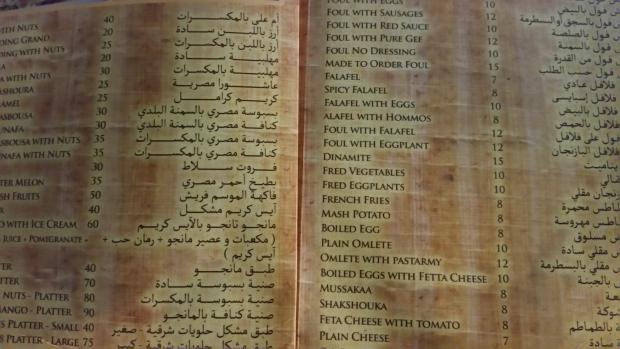 WITH NUTS 40 أم على بالمكسرات
DING GRAND 20 أرز باللبن سادة
DING WITH NUTS 30 أرز باللبن بالمكسرات
20 مهلبية سادة
WITH NUTS 30 مهلبية بالمكسرات
ASHOURA 25 عاشورا مصرية
AMEL 25 كريم كرامل
ASBOUSA 30 بسبوسة مصري بالسمنة البلدي
UNAFA 30 كنافة مصري بالسمنة البلدي
ASBOUSA WITH NUTS 35 بسبوسة مصري بالمكسرات
UNAFA WITH NUTS 35 كنافة مصري بالمكسرات
30 فروت سلاط
TER MELON 35 بطيخ أحمر مصري
SH FRUITS 50 فاكهة الموسم فريش
40 آيس كريم مشكل
O WITH ICE CREAM 60 مانجو تانجو بالآيس كريم
JUICE + POMIGRANATE + ( مكعبات و عصير مانجو + رمان حب +
آيس كريم )
TER 40 طبق مانجو
ATTER 70 صنية بسبوسة سادة
NUTS - PLATTER 80 صنية بسبوسة بالمكسرات
MANGO - PLATTER 90 صنية كنافة بالمانجو
TS PLATTER - SMALL 40 طبق مشكل حلويات شرقية - صغير
TS PLATTER - LARGE 75 طبق مشكل حلويات شرقية - كبير
FOUL WITH EGGS 10 فول بالبيض
FOUL WITH SAUSAGES 12 فول بالسجق أو السطرمة
FOUL WITH RED SAUCE 10 فول بالصلصة
FOUL WITH PURE GEF 12 فول بالسمنة
FOUL NO DRESSING 10 فول من القدرة
MADE TO ORDER FOUL 15 فول حسب الطلب
FALAFEL 7 فلافل عادي
SPICY FALAFEL 8 فلافل إسبايسى
FALAFEL WITH EGGS 10 فلافل بالبيض
ALAFEL WITH HOMMOS 8 فلافل بالحمص
FOUL WITH FALAFEL 12 فول على فلافل
FOUL WITH EGGPLANT 12 البازنجان
DINAMITE 15
FRED VEGETABLES 10
FRED EGGPLANTS 10 نجان مقلي
FRENCH FRIES 8 محمرة
MASH POTATO 8 مهروسة
BOILED EGG 8 مسلوق
PLAIN OMLETE 8 مقلي سادة
OMLETE WITH PASTARMY 12 مقلي بالبسطرمة
BOILED EGGS WITH FETTA CHEESE 10 بالجبنة
MUSSAKAA 8
SHAKSHOUKA 8
FETA CHEESE WITH TOMATO 8 بالطماطم
PLAIN CHEESE 7 سادة